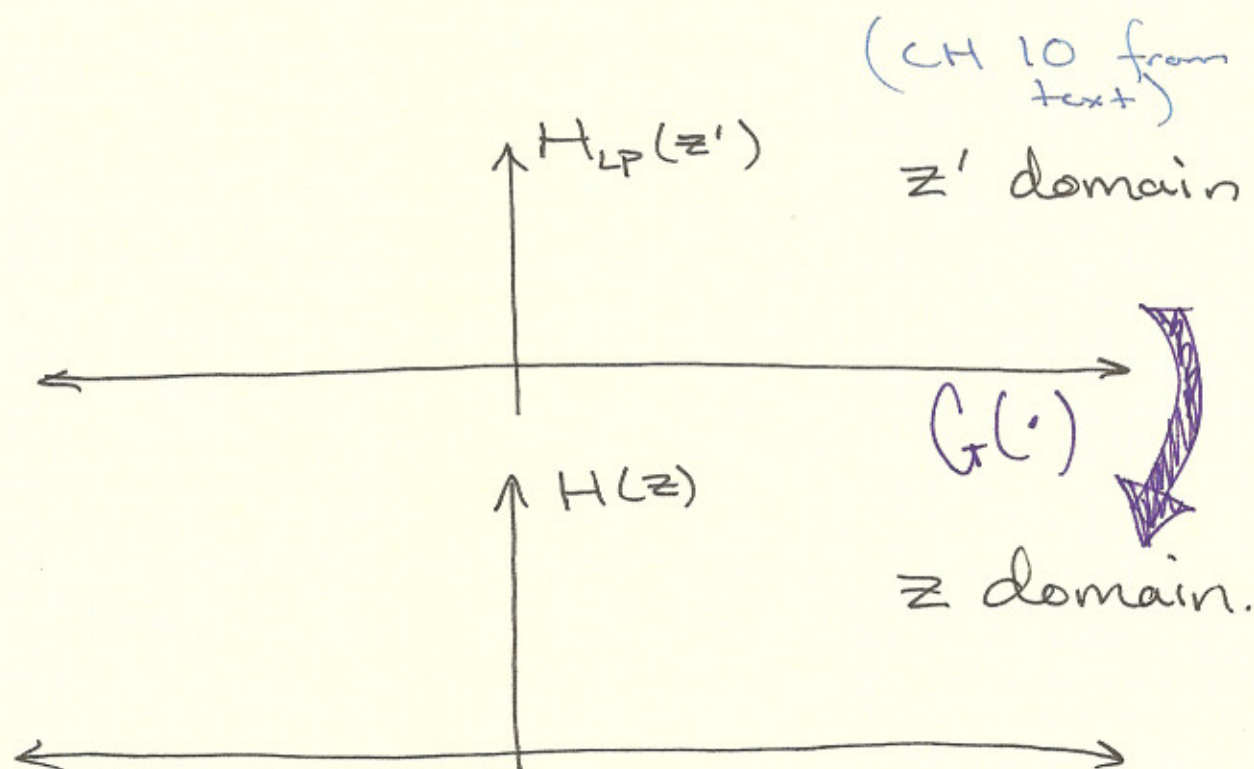 (CH 10 from
text)
H_LP(z')
z' domain
G(·)
H(z)
z domain.